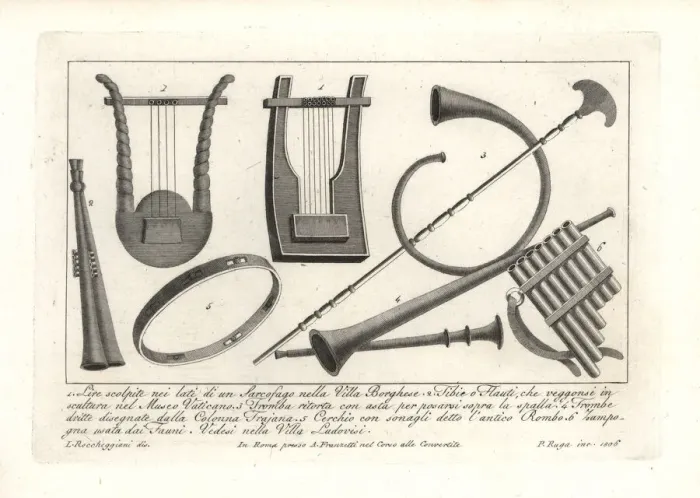 2
1
2
3
5
4
6
1. Lire scolpite nei lati di un Sarcofago nella Villa Borghese. 2. Tibie o Flauti, che veggonsi in
scultura nel Museo Vaticano. 3. Tromba ritorta con asta per posarsi sopra la spalla. 4. Trombe
dritte disegnate dalla Colonna Trajana. 5. Cerchio con sonagli detto l'antico Rombo. 6. Zampo-
gna usata dai Fauni. Vedesi nella Villa Ludovisi.
L. Rocchiggiani dis. In Roma presso A. Franzetti nel Corso alle Convertite P. Ruga inc. 1806